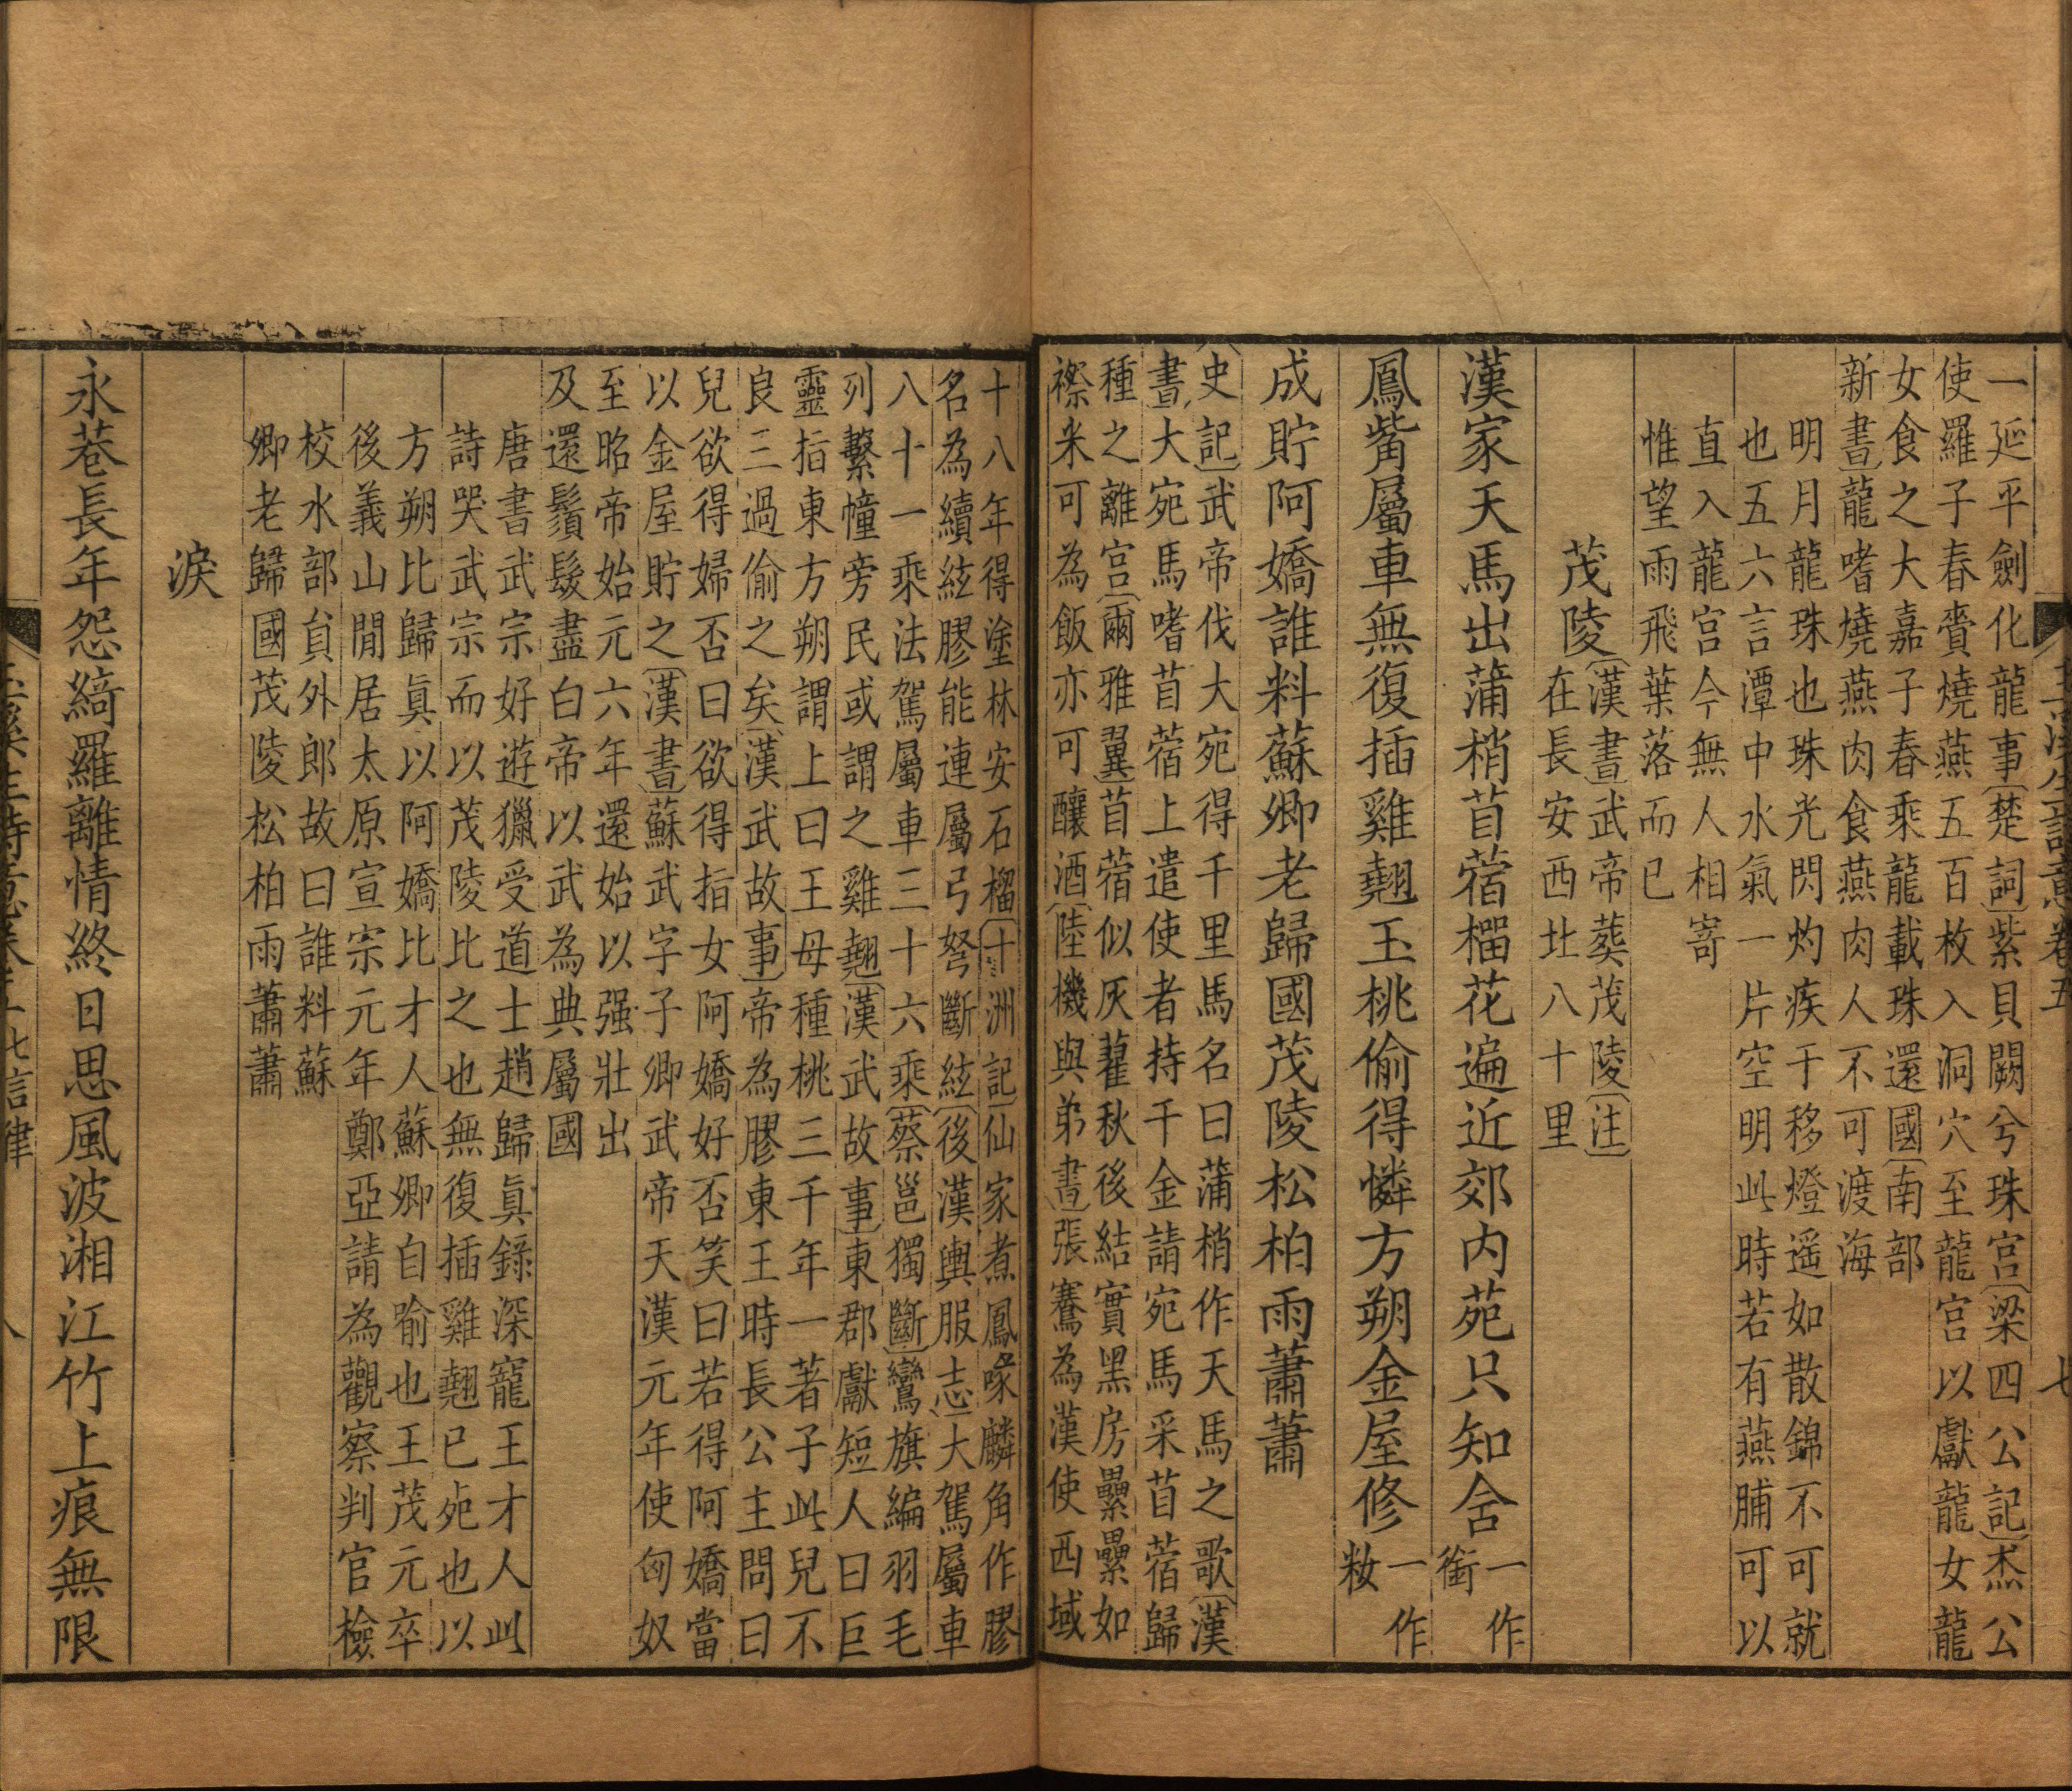 一延平劍化龍事〔楚詞〕紫貝闕兮珠宮〔梁四公記〕杰公
使羅子春賫燒燕五百枚入洞穴至龍宮以獻龍女龍
女食之大嘉子春乘龍載珠還國〔南部
新書〕龍嗜燒燕肉食燕肉人不可渡海
明月龍珠也珠光閃灼疾于移燈遥如散錦不可就
也五六言潭中水氣一片空明此時若有燕脯可以
直入龍宮今無人相寄
惟望雨飛葉落而已
茂陵〔漢書〕武帝葬茂陵〔注〕
在長安西北八十里
漢家天馬出蒲梢苜蓿榴花遍近郊内苑只知含一作
銜
鳳觜屬車無復插雞翹玉桃偷得憐方朔金屋修一作
妝
成貯阿嬌誰料蘇卿老歸國茂陵松柏雨蕭蕭
〔史記〕武帝伐大宛得千里馬名曰蒲梢作天馬之歌〔漢
書〕大宛馬嗜苜蓿上遣使者持千金請宛馬采苜蓿歸
種之離宮〔爾雅翼〕苜蓿似灰藋秋後結實黑房纍纍如
穄米可為飯亦可釀酒〔陸機與弟書〕張騫為漢使西域
十八年得塗林安石榴〔十洲記〕仙家煮鳳喙麟角作膠
名為續絃膠能連屬弓弩斷絃〔後漢輿服志〕大駕屬車
八十一乘法駕屬車三十六乘〔蔡邕獨斷〕鸞旗編羽毛
列繫幢旁民或謂之雞翹〔漢武故事〕東郡獻短人曰巨
靈指東方朔謂上曰王母種桃三千年一著子此兒不
良三過偷之矣〔漢武故事〕帝為膠東王時長公主問曰
兒欲得婦否曰欲得指女阿嬌好否笑曰若得阿嬌當
以金屋貯之〔漢書〕蘇武字子卿武帝天漢元年使匈奴
至昭帝始元六年還始以强壯出
及還鬚髮盡白帝以武為典屬國
唐書武宗好遊獵受道士趙歸真錄深寵王才人此
詩哭武宗而以茂陵比之也無復插雞翹已死也以
方朔比歸真以阿嬌比才人蘇卿自喻也王茂元卒
後義山閒居太原宣宗元年鄭亞請為觀察判官檢
校水部員外郎故曰誰料蘇
卿老歸國茂陵松柏雨蕭蕭
淚
永巷長年怨綺羅離情終日思風波湘江竹上痕無限